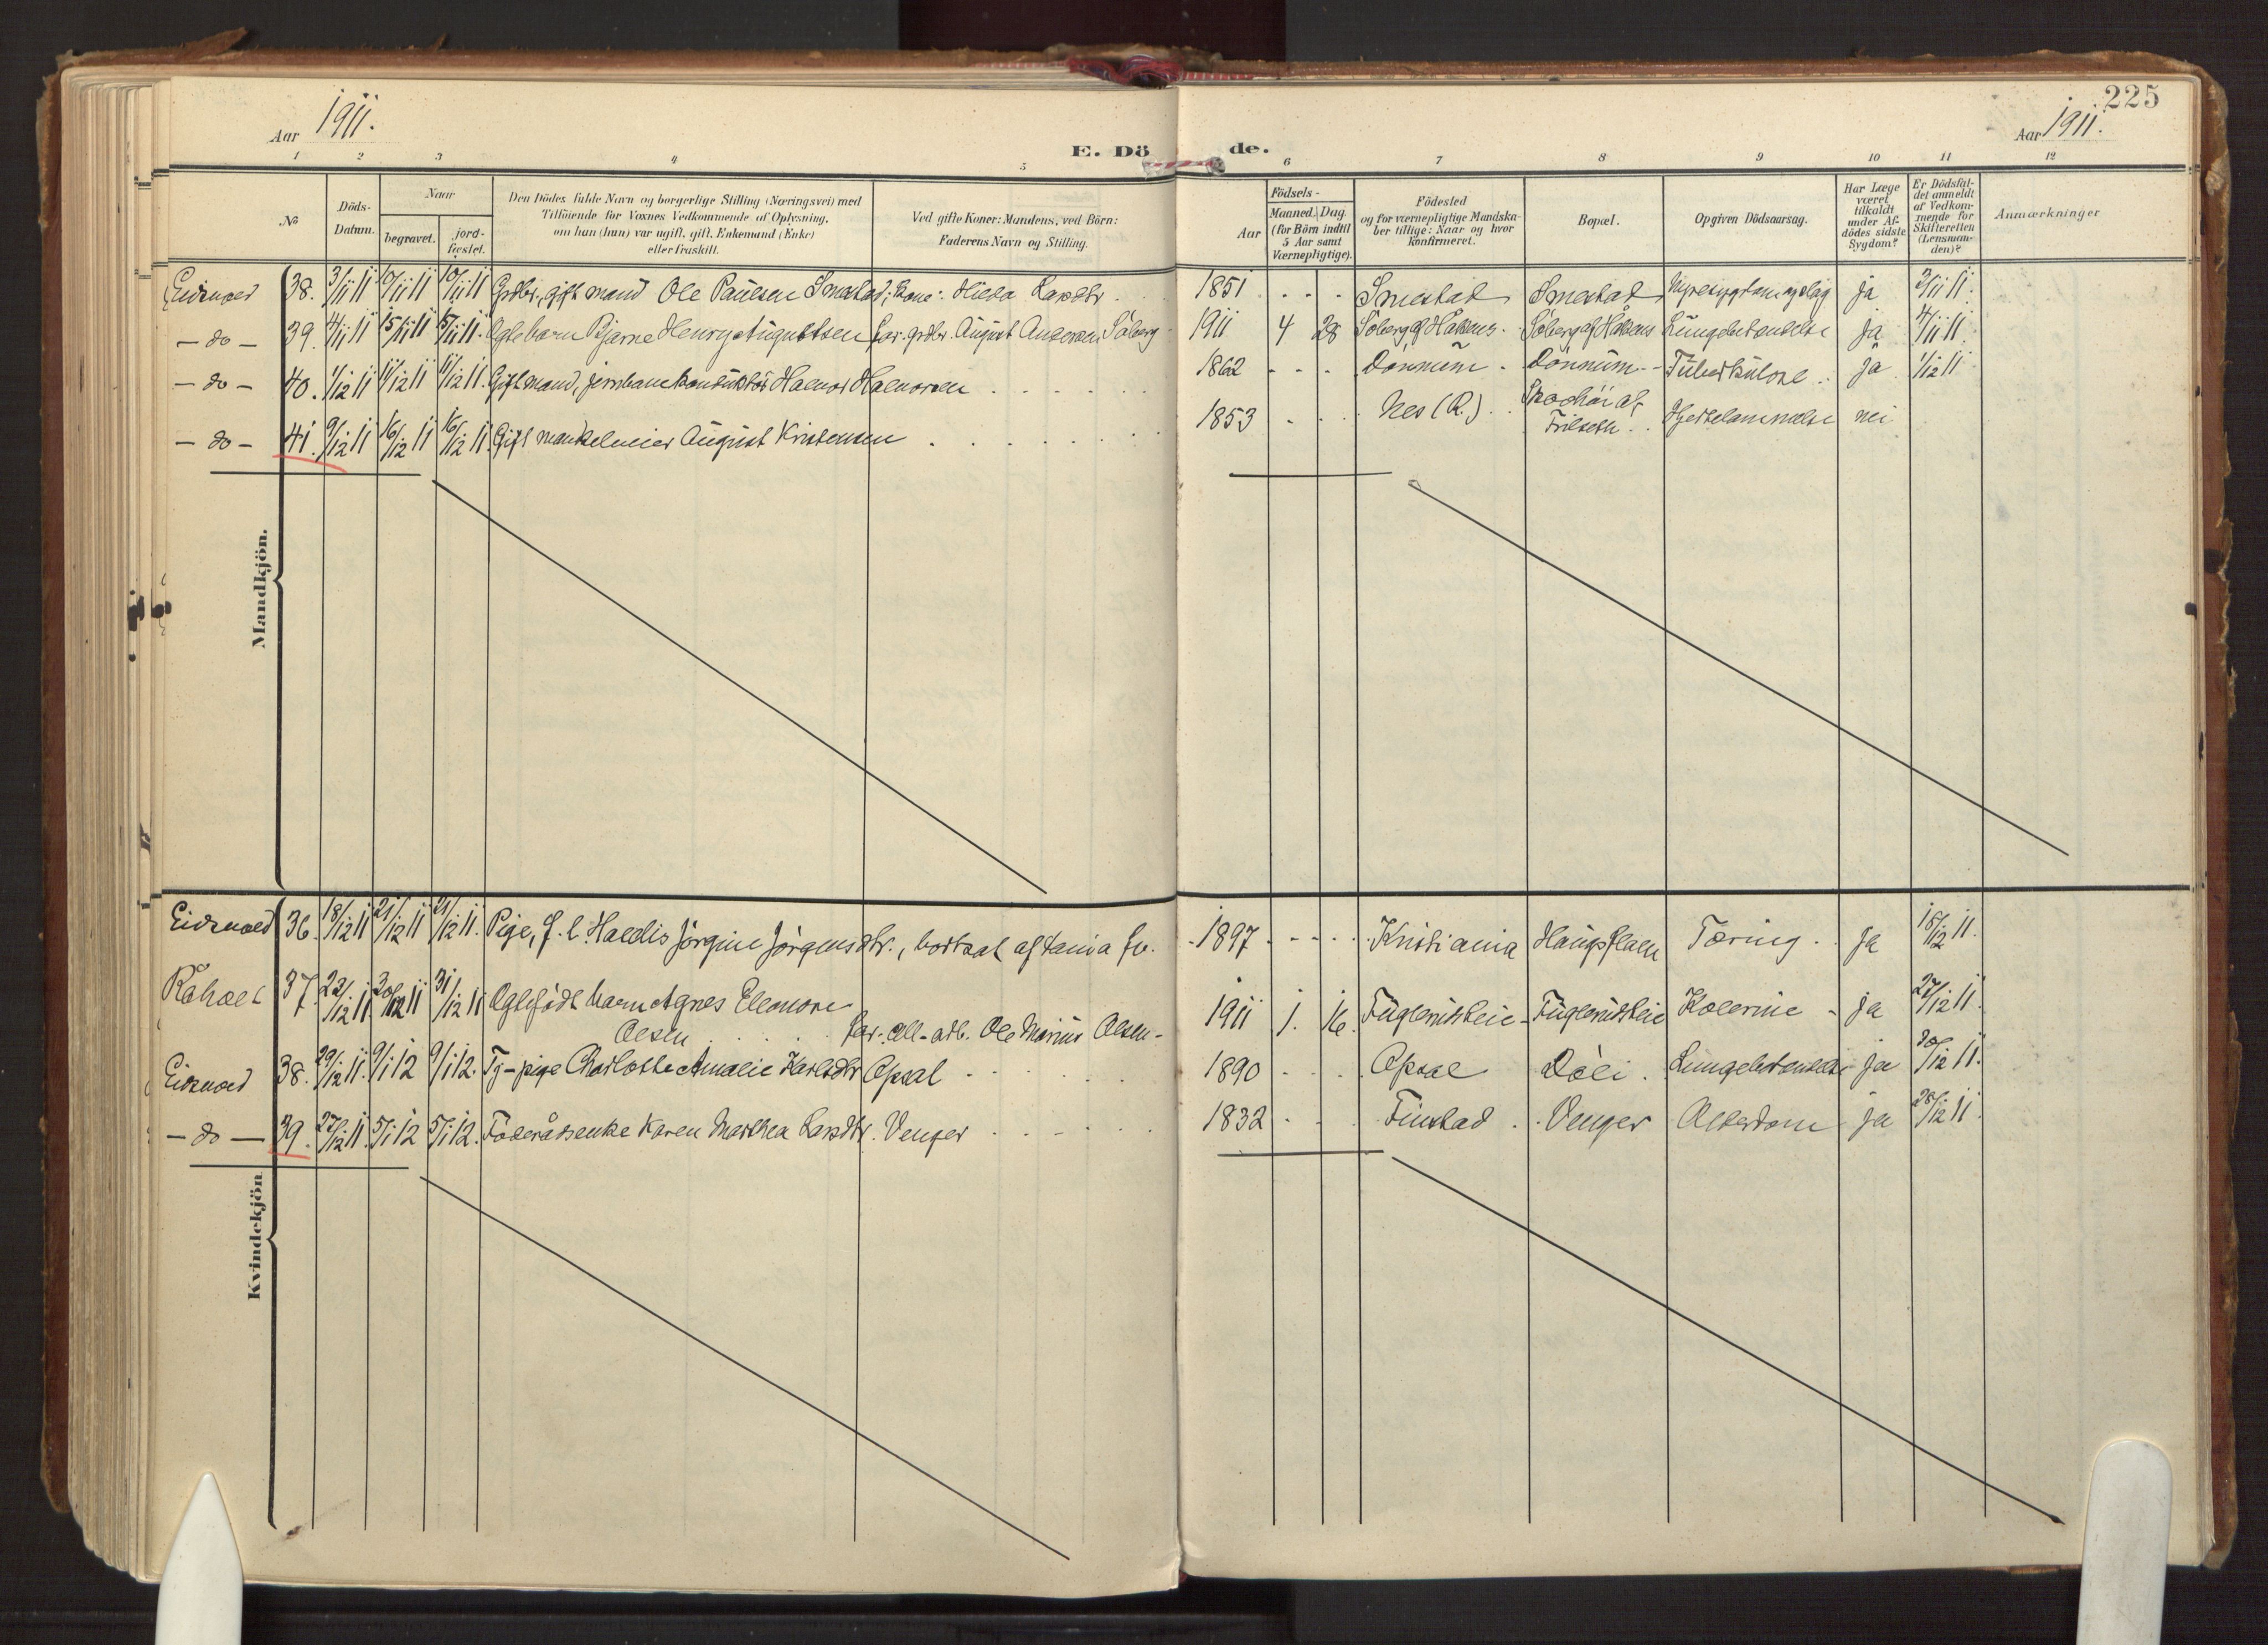 225
Aar 1911.
E. Dö de.
Aar 1911.
1 2 3 4 5 6 7 8 9 10 11 12
No
Döds-Datum.
Naar
begravet.
jord-fæstet.
Den Dödes fulde Navn og borgerlige Stilling (Næringsvei) med
Tilföiende for Voxnes Vedkommende af Oplysning,
om han (hun) var ugift, gift, Enkemand (Enke)
eller fraskilt.
Ved gifte Koner: Mandens, ved Börn:
Faderens Navn og Stilling.
Födsels-
Aar
Maaned. Dag.
(for Börn indtil
5 Aar samt
Værnepligtige).
Födested
og for værnepligtige Mandska-
ber tillige: Naar og hvor
konfirmeret.
Bopæl.
Opgiven Dödsaarsag.
Har Læge
været
tilkaldt
under Af-
dödes sidste
Sygdom?
Er Dödsfal-
det anmeldt
af Vedkom-
mende for
Skifteretten
(Lensman-
den)?
Anmærkninger
Eidsvold 38. 3/11 11 10/11 11 10/11 11 Grdbr., gift mand Ole Paulsen Smestad; kone: Hilda Larsdtr. 1851 Smestad Smestad ja 3/11 11.
- do - 39. 4/11 11 15/11 11 15/11 11. Ægte barn Bjarne Henry Augustsen far: grdbr. August Andersen Söberg 1911 4 28 Söberg af Håkens. Söberg af Håkens Lungebetændelse ja 4/11 11.
- do - 40. 1/12 11 11/12 11 11/12 11. Gift mand, jernbanekonduktör Halvor Halvorsen 1862 Dönnum. Dönnum Tuberkulose. ja 1/12 11.
- do - 41. 9/12 11 16/12 11 16/12 11. Gift mand August Kristensen 1853 Nes (R.). Hjertelammelse nei
Mandkjön.
Eidsvold 36. 18/12 11 21/12 11 21/12 11. Pige, f. l. Haldis Jörgine Jörgensdtr., bortsat af 1897 Kristiania Tæring. ja 18/12 11.
Råholt 37. 22/12 11 30/12 11 31/12 11 Ægtefödt barn Agnes Eleonore
Olsen far: Ole Marius Olsen 1911 1. 16. Fuglerudseie Fuglerudseie Kolerine ja 27/12 11.
Eidsvold 38. 29/12 11. 9/1 12 9/1 12. Tj-pige Charlotte Amalie Karlsdtr Opsal 1890 Opsal Lungebetændelse ja 30/12 11.
- do - 39. 27/12 11. 5/1 12 5/1 12. Föderådsenke Karen Marthea Larsdtr. Venger 1832 Finstad Venger Alderdom ja 28/12 11.
Kvindekjön